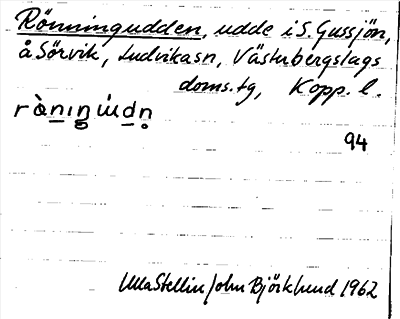 Rönningudden, udde i S. Gussjön,
å Sörvik, Ludvikasn, Västerbergslags
doms.tg, Kopp. l.
94
Ulla Stellin/John Björklund 1962